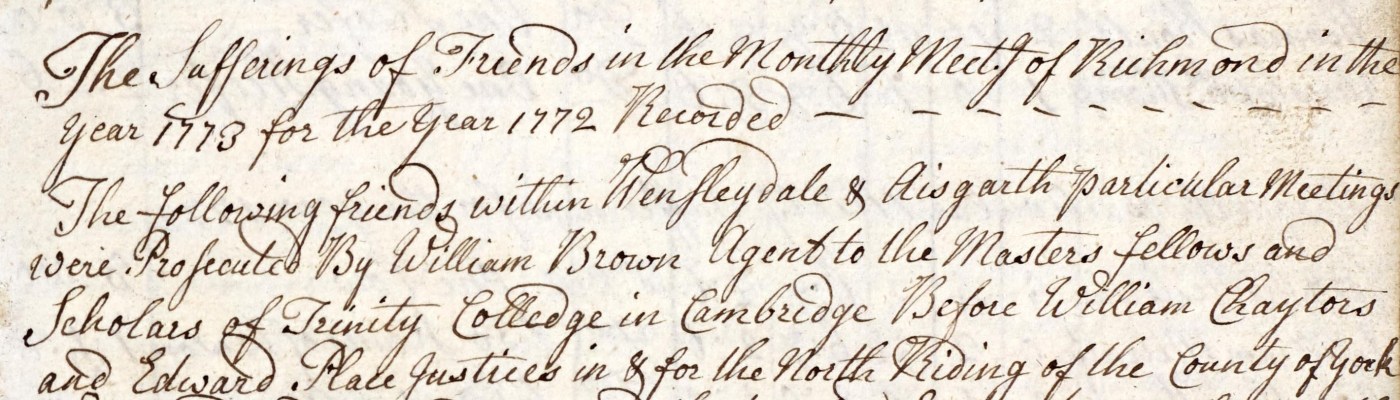 The Sufferings of Friends in the Monthly Meetg of Richmond in the
Year 1773 for the Year 1772 Recorded
The following friends within Wensleydale & Aisgarth particular Meetings
were Prosecuted By William Brown Agent to the Masters fellows and
Scholars of Trinity Colledge in Cambridge Before William Chaytors
and Edward Place Justices in & for the North Riding of the County of York